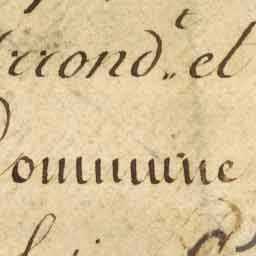 Arrond.t et
Commune